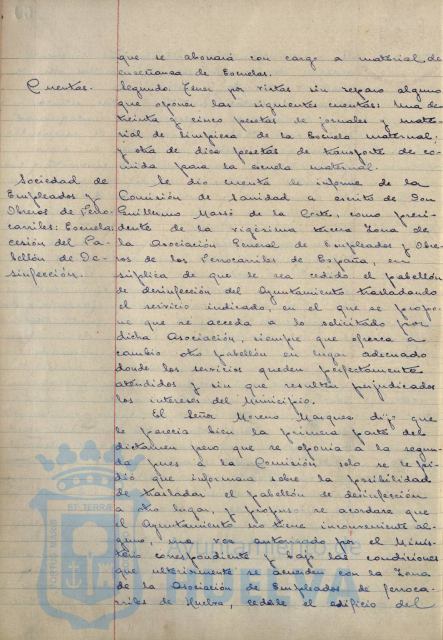 que se abonará con cargo a material de
enseñanza de Escuelas.
Cuentas.
Segundo. Tener por vistas sin reparo alguno
que oponer las siguientes cuentas: Una de
treinta y cinco pesetas de jornales y mate-
rial de limpieza de la Escuela maternal;
y otra de diez pesetas de transporte de co-
mida para la escuela maternal.
Sociedad de
Empleados y
Obreros de Ferro-
carriles: Escuela:
cesión del Pa-
bellón de De-
sinfección.
Se dio cuenta de informe de la
Comisión de Sanidad a escrito de Don
Guillermo Massó de la Corte, como presi-
dente de la vigésima tercera Zona de
la Asociación General de Empleados y Obre-
ros de los Ferrocarriles de España, en
súplica de que le sea cedido el pabellón
de desinfección del Ayuntamiento trasladando
el servicio indicado, en el que se propo-
ne que se acceda a lo solicitado por
dicha Asociación, siempre que ofrezca a
cambio otro pabellón en lugar adecuado
donde los servicios queden perfectamente
atendidos y sin que resulten perjudicados
los intereses del Municipio.
El Señor Moreno Marquez dijo que
le parecia bien la primera parte del
dictamen pero que se oponia a la segun-
da pues a la Comisión solo se le pi-
dió que informara sobre la posibilidad
de trasladar el pabellón de desinfección
a otro lugar, y propuso se acordara que
el Ayuntamiento no tiene inconveniente al-
guno, una vez autorizado por el Minis-
terio correspondiente y bajo las condiciones
que ulteriormente se acuerden con la Zona
de la Asociación de Empleados de ferroca-
rriles de Huelva, cederle el edificio del
ET TERRAE
Ayuntamiento de
HUELVA